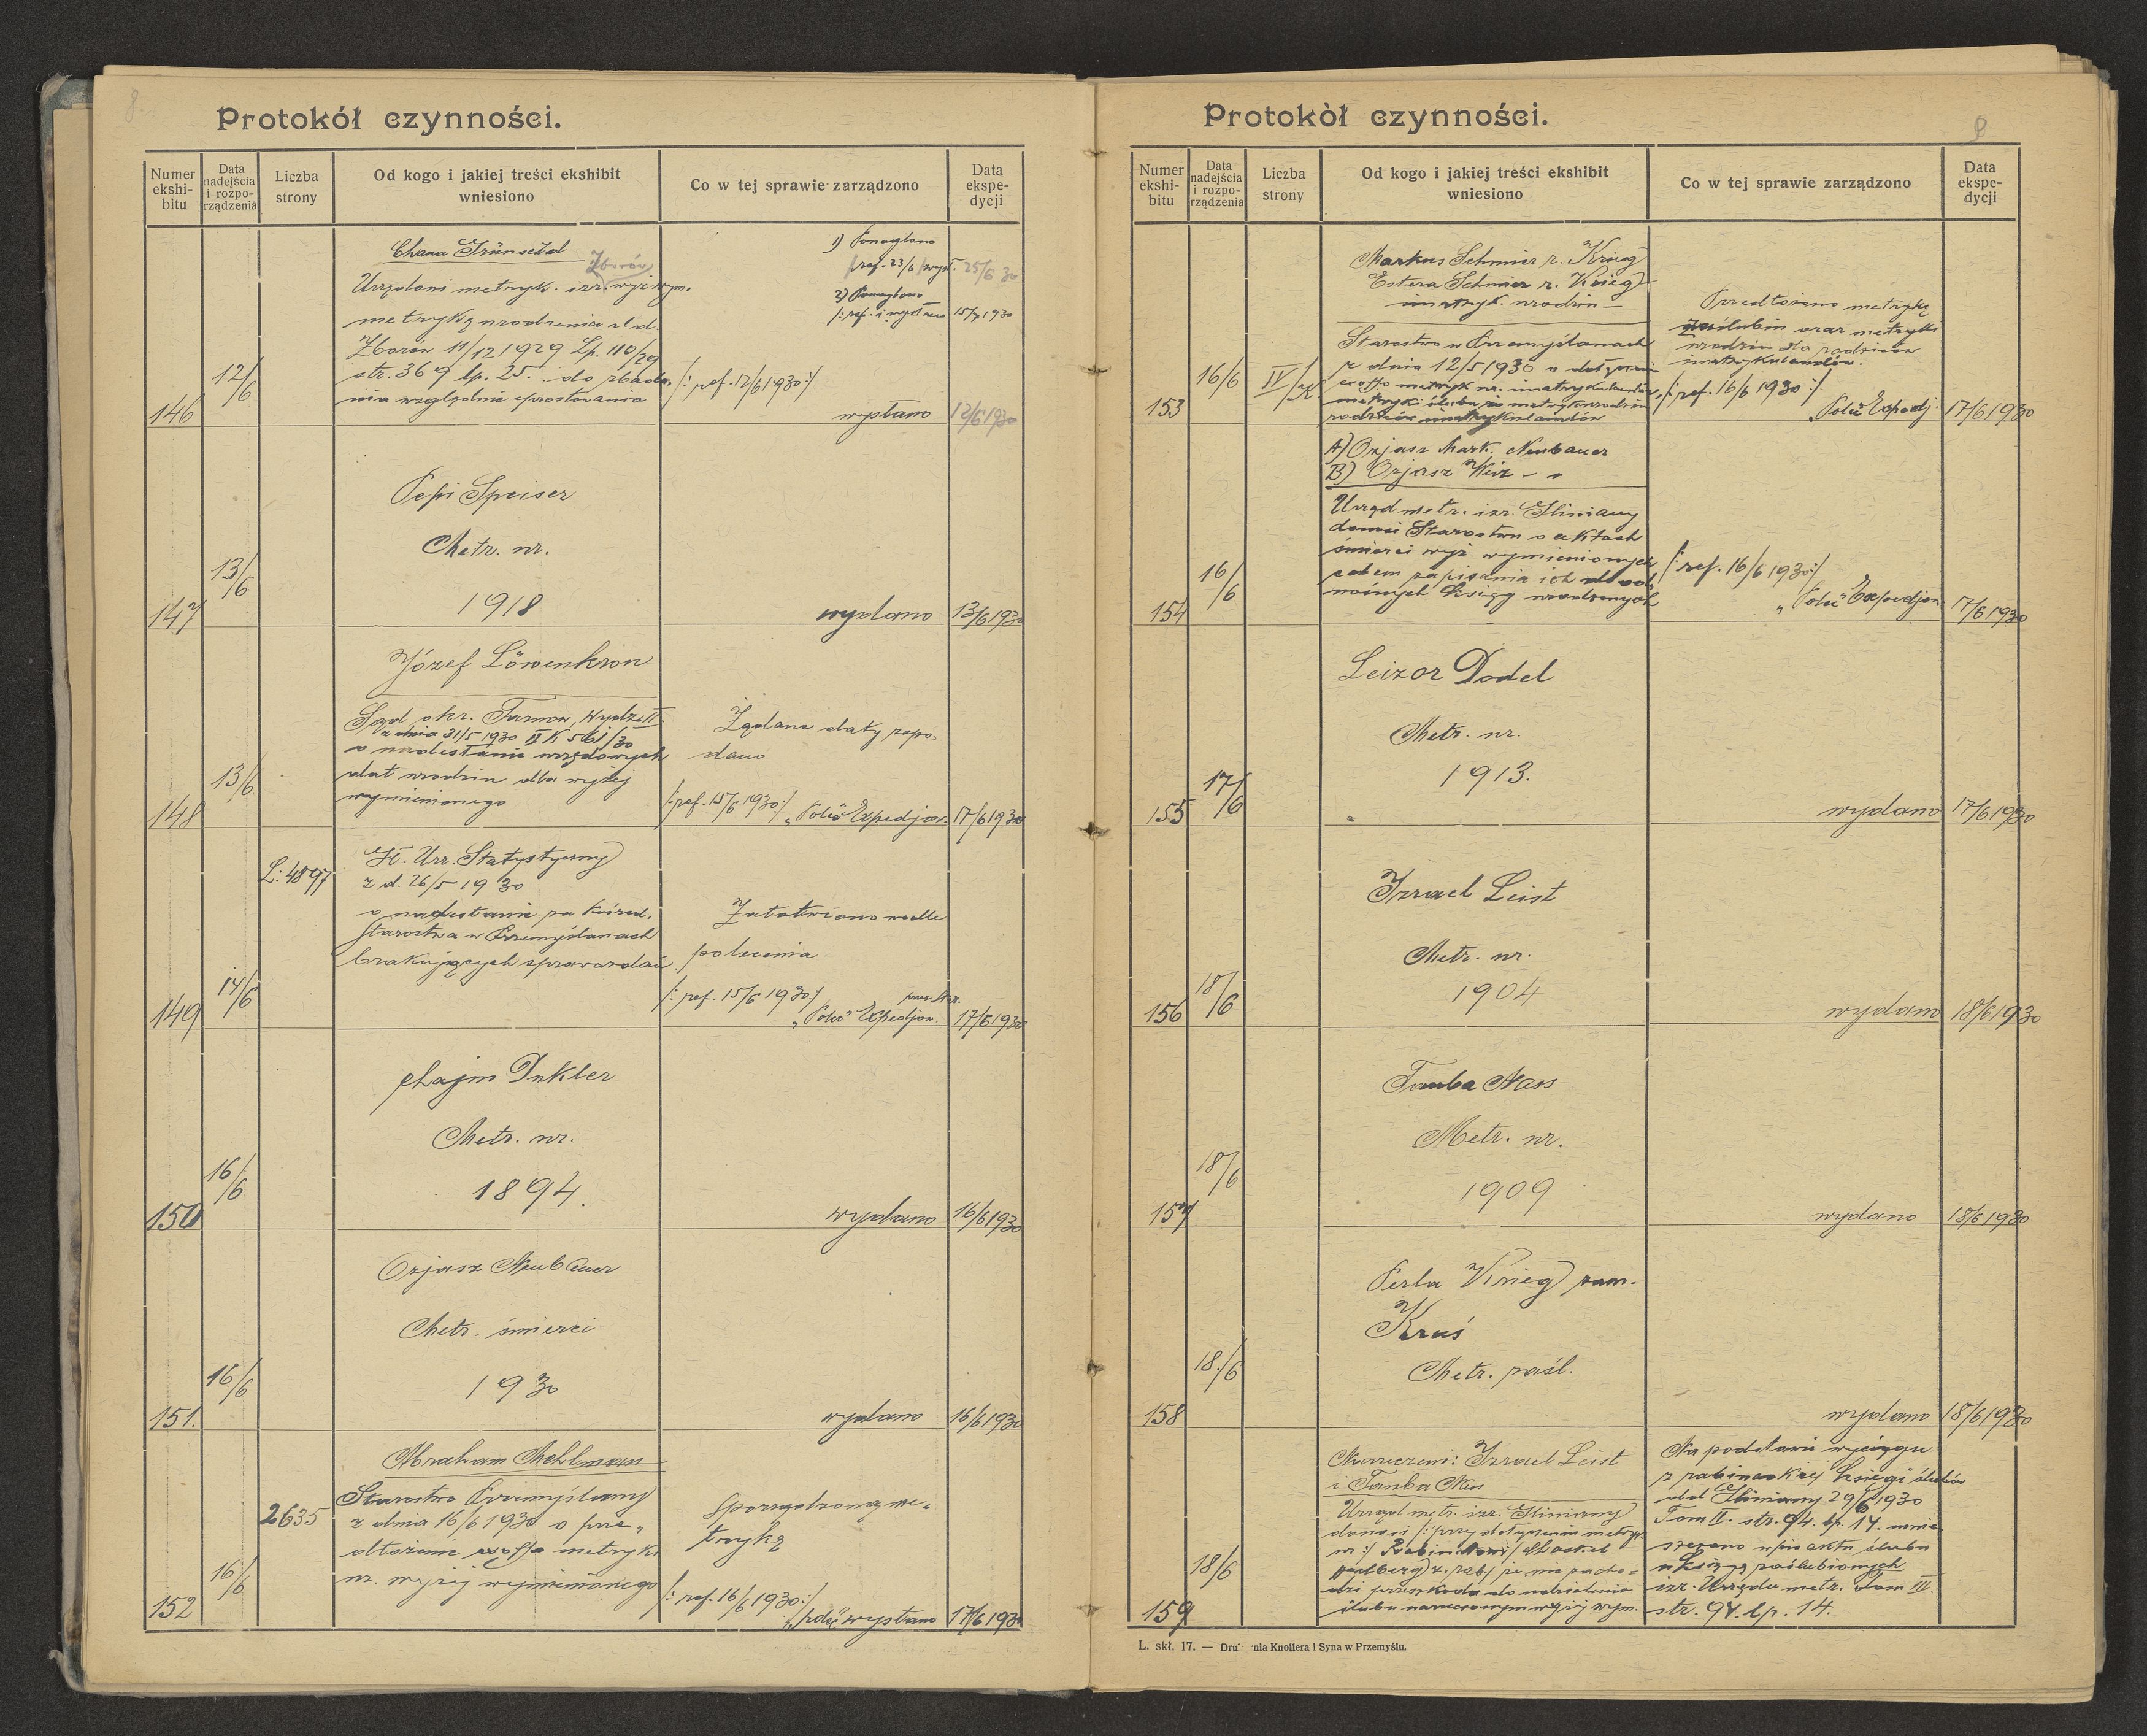 8
Protokół czynności.
Numer ekshi-bitu
Data nadejścia i rozpo-rządzenia
Liczba strony
Od kogo i jakiej treści ekshibit wniesiono
Co w tej sprawie zarządzono
Data ekspe-dycji
Chana
Zborów
Urzędowi metryk. izr. wyż wym.
metrykę urodzenia dd.
Zborów 11/12 1929 Lp. 110/29
str. 369 lp. 25. do zbada-
nia względnie sprostowania
1) Ponaglono
/ref. 23/6 /wysł. 25/6 30
2) Ponaglono
/: ref. i wysłano 15/7 1930
/: ref. 12/6 1930 :/
wysłano 12/6 1930
146
12/6
Pepi Speiser
Metr. ur.
1918
147
13/6
wydano 13/6 1930
Józef Löwenkron
Sąd okr. Tarnów, Wydz. II
z dnia 31/5 1930 II K 561/30
o nadesłanie urzędowych
dat urodzin dla wyżej
wymienionego
Żądane daty zapo-
dano
/: ref. 15/6 1930 :/
"Poleć" Expedjow. 17/6 1930
148
13/6
L: 4897
Gł. Urz. Statystyczny
z d. 26/5 1930
o nadesłanie za pośred.
Starostwa w Przemyślanach
brakujących sprawozdań
Załatwiono wedle
polecenia
/: ref. 15/6 1930 :/ przez Star.
"Poleć" Expedjow. 17/6 1930
149
14/6
Chajm Dukler
Metr. ur.
1894.
150
16/6
wydano 16/6 1930
Ozjasz Neubauer
Metr. śmierci
1930
151.
16/6
wydano 16/6 1930
Abraham Mehlman
2635
Starostwo Przemyślany
z dnia 16/6 1930 o prze-
dłożenie exoffo metryki
ur. wyżej wymienionego
Sporządzono me-
trykę
/: ref. 16/6 1930 :/
"poleć" wysłano 17/6 1930
152
16/6
9
Protokòł czynności.
Numer ekshi-bitu
Data nadejścia i rozpo-rządzenia
Liczba strony
Od kogo i jakiej treści ekshibit wniesiono
Co w tej sprawie zarządzono
Data ekspe-dycji
Markus Schmier r. Krieg
Estera Schmier r. Krieg
imatryk. urodzin
Starostwo w Przemyślanach
z dnia 12/5 1930 o dołączenie
exoffo metryk ur. imatrykulantów,
metryki ślubu i metryk urodzin
rodziców imatrykulantów
Przedłożono metrykę
zaślubin oraz metryki
urodzin dla rodziców
imatrykulantów.
/: ref. 16/6 1930 :/
"Poleć" Expedj. 17/6 1930
153
16/6
A) Ozjasz Mark. Neubauer
B) Ozjasz Weiz
Urząd metr. izr. Gliniany
donosi Starostwu o aktach
śmierci wyż wymienionych
celem zapisania ich do
ksiąg urodzonych
/: ref. 16/6 1930 :/
"Poleć" Expedjow. 17/6 1930
154
16/6
Leizor Dodel
Metr. ur.
1913.
155
17/6
wydano 17/6 1930
Izrael Leist
Metr. ur.
1904
156
18/6
wydano 18/6 1930
Tauba Nass
Metr. ur.
1909
157
18/6
wydano 18/6 1930
Perla Krieg zam.
Kruś
Metr. zaśl.
158
18/6
wydano 18/6 1930
Narzeczeni: Izrael Leist
i Tauba Nass
Urząd metr. izr. Gliniany
donosi /: przy dołączeniu metryk
ur :/ Rabinatowi
że nie zacho-
dzi przeszkoda do udzielenia
ślubu narzeczonym wyżej wym.
Na podstawie wyciągu
z rabinackiej księgi ślubów
dd Gliniany 29/6 1930
Tom II. str. 94. lp. 14. umie-
szczono wpis aktu ślubu
w księgę zaślubionych
izr. Urzędu metr. Tom III.
str. 94. lp. 14.
159
18/6
L. skł. 17. — Dru nia Knollera i Syna w Przemyślu.